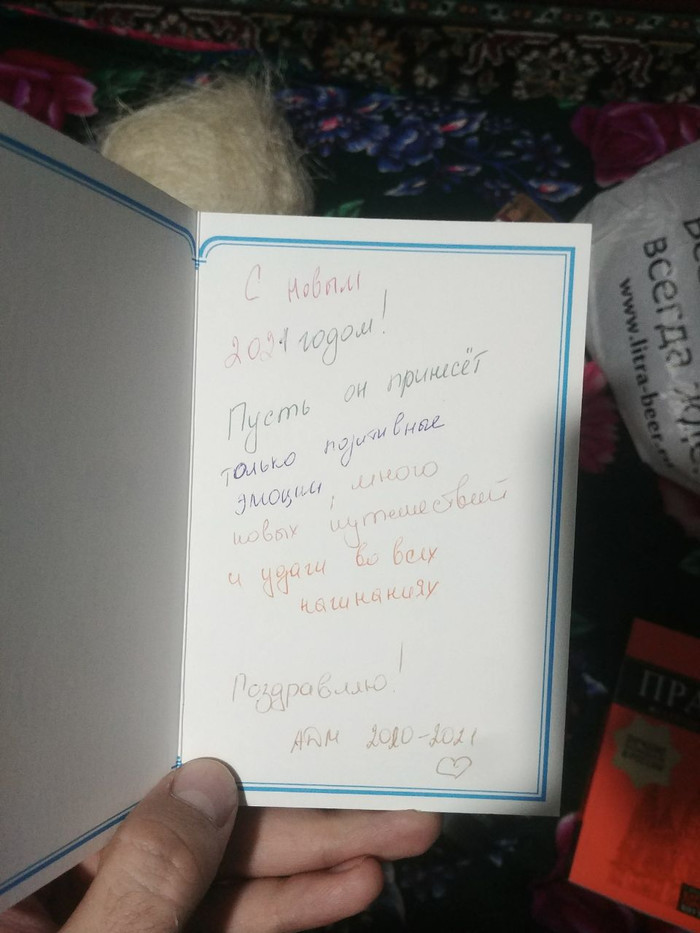 С новым
2021 годом!
Пусть он принесёт
только позитивные
эмоции, много
новых путешествий
и удачи во всех
начинаниях
Поздравляю!
АДМ 2020-2021
всегда
www.litra-beer.ru
ПРА